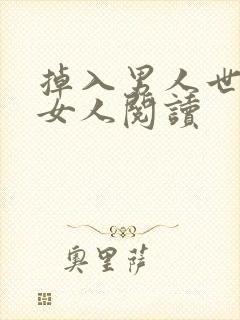 掉入男人世
女人閱讀
奧里薩